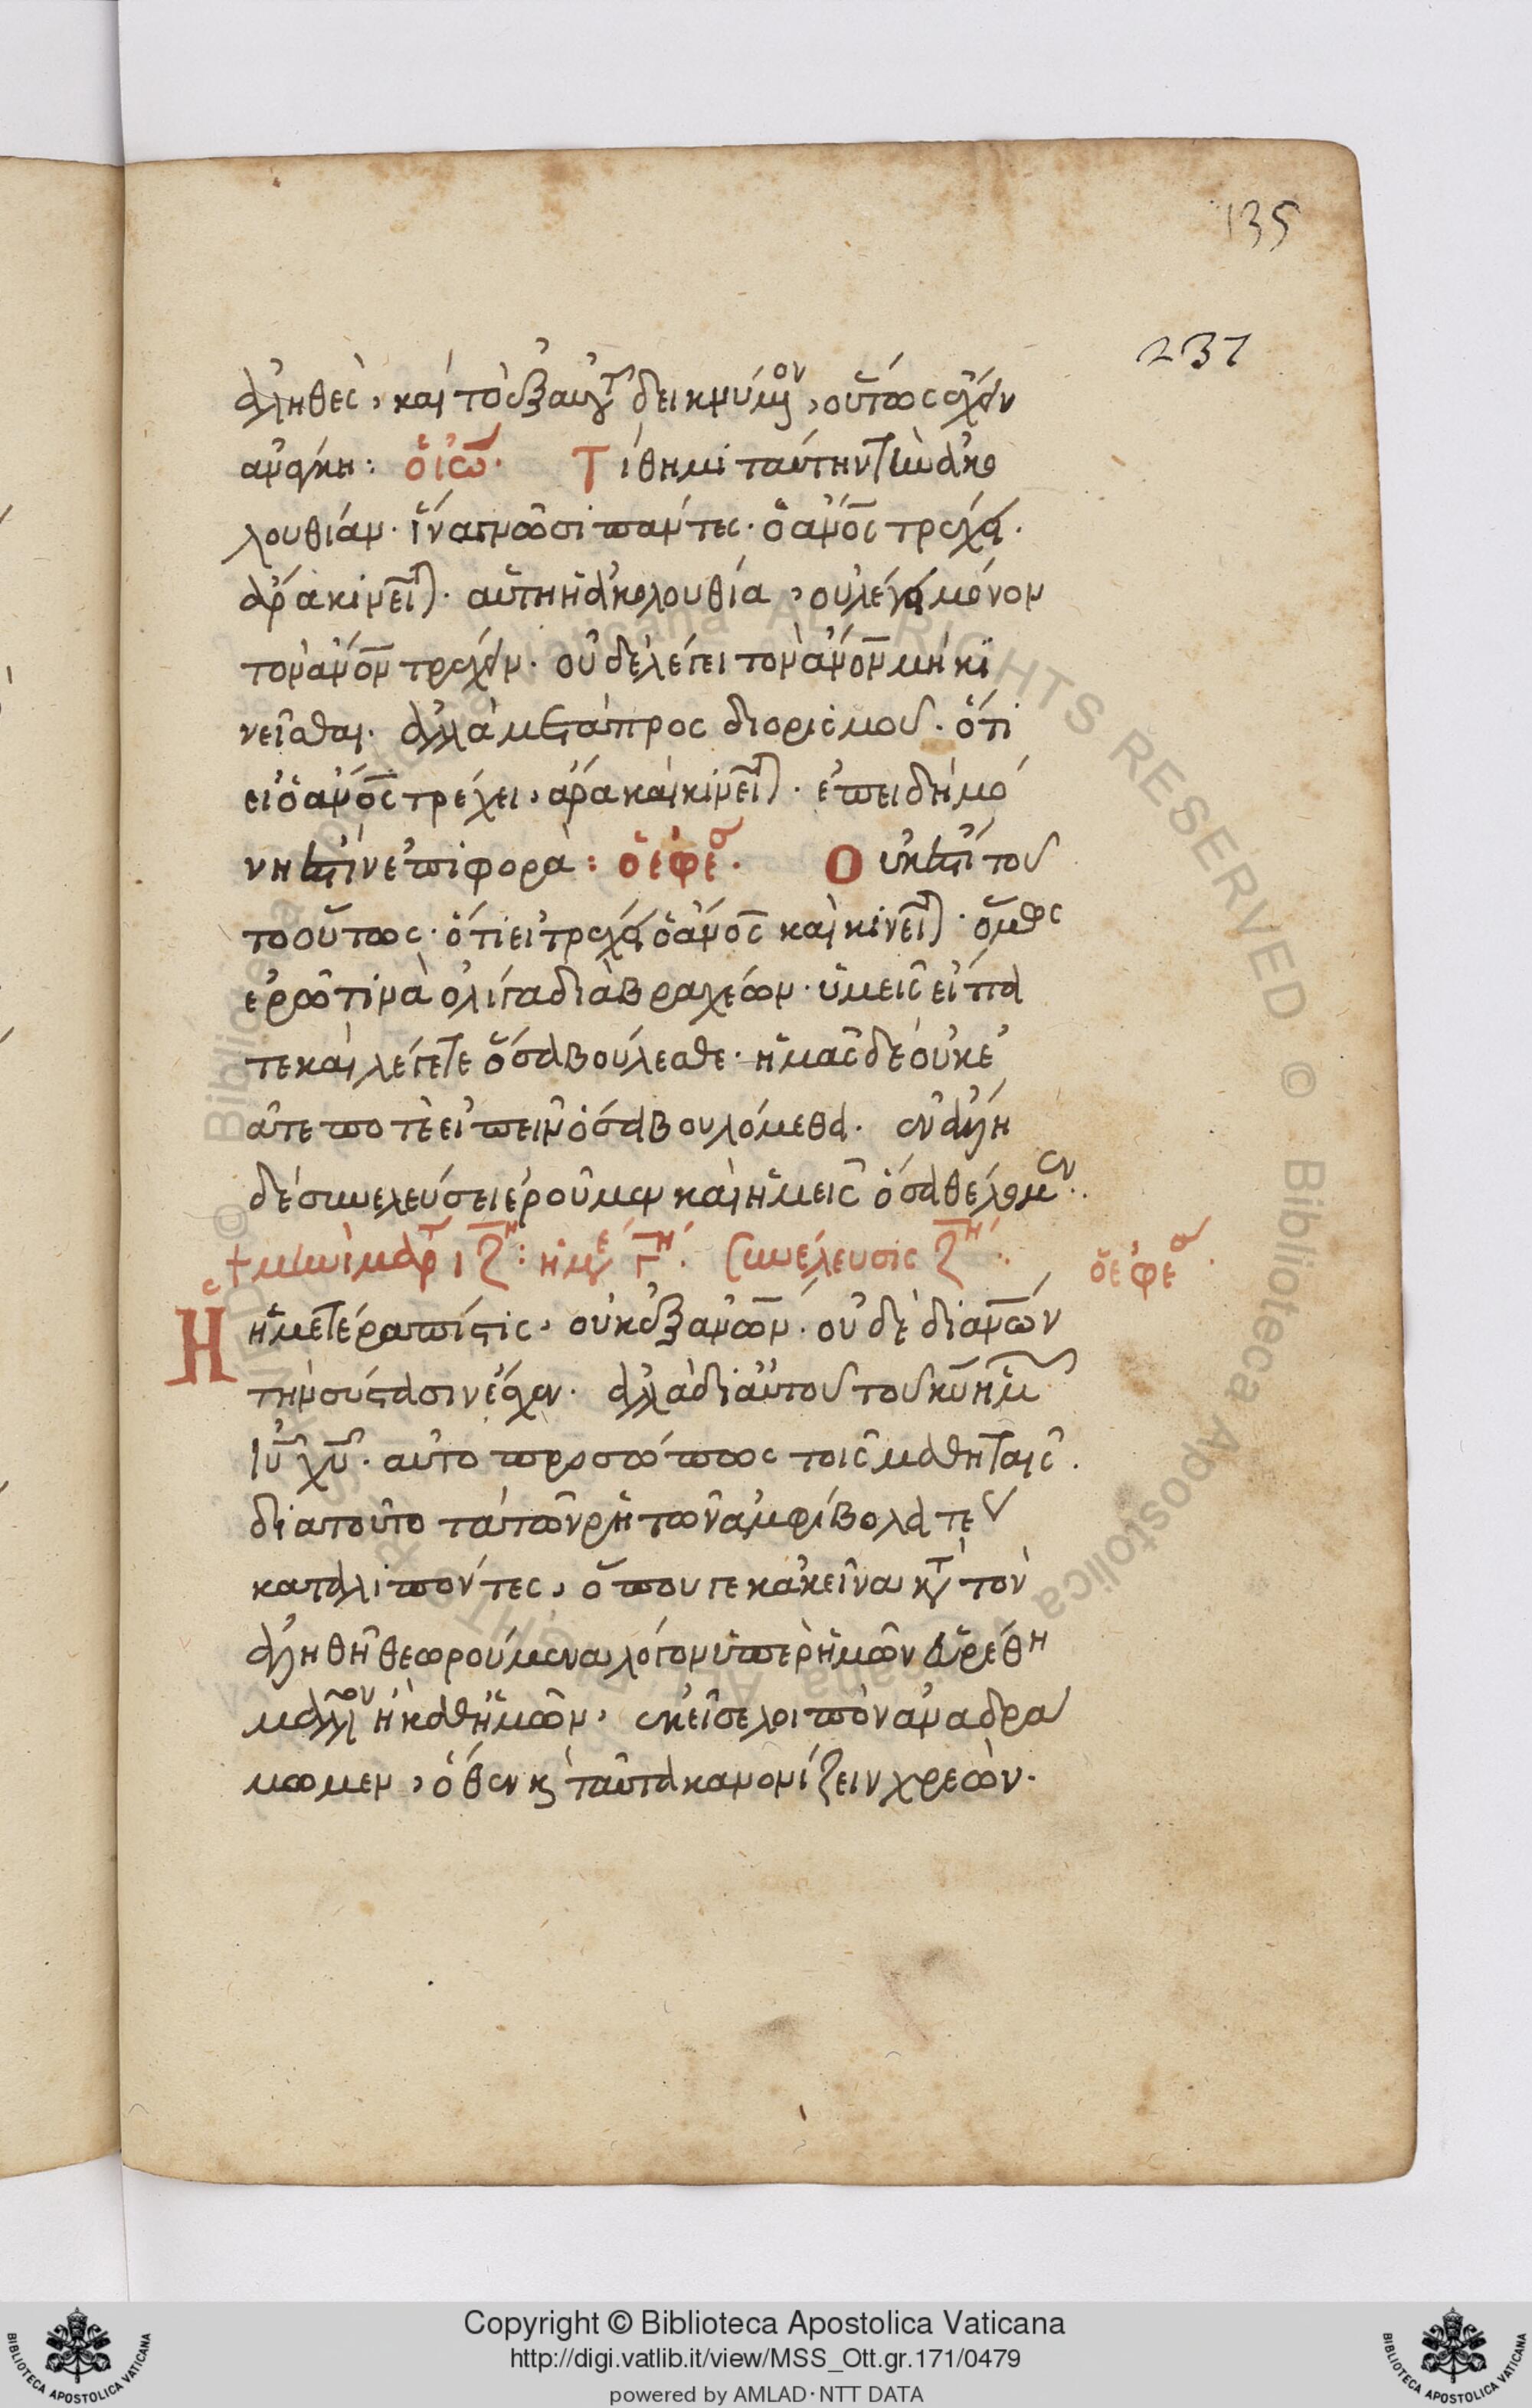 135
237
ἀληθές, καὶ τὸ ἐξ αὐτοῦ δεικνύμενον, οὕτως ἔχειν
ἀνάγκη: ὁ ἰω. Τίθημι ταύτην τὴν ἀκο
λουθίαν. ἵνα γνῶσι πάντες. ὁ ἄνος τρέχει.
ἄρα κινεῖται. αὕτη ἡ ἀκολουθία, οὐ λέγει μόνον
τὸν ἄνον τρέχειν. οὐδὲ λέγει τὸν ἄνον μὴ κι
νεῖσθαι. ἀλλὰ μετὰ προσδιορισμοῦ. ὅτι
εἰ ὁ ἄνος τρέχει, ἄρα καὶ κινεῖται. ἐπειδὴ μό
νη ἐστὶν ἐπιφορὰ: ὁ ἐφέσου. Οὐκ ἔστι τοῦ
το οὕτως. ὅτι εἰ τρέχει ὁ ἄνος καὶ κινεῖται. ὅμως
ἐρῶ τινὰ ὀλίγα διὰ βραχέων. ὑμεῖς εἴπα
τε καὶ λέγετε ὅσα βούλεσθε. ἡμᾶς δὲ οὐκ ἐ
ᾶτέ ποτε εἰπεῖν ὅσα βουλόμεθα. ἐν ἄλλη
δὲ συνελεύσει ἐροῦμεν καὶ ἡμεῖς ὅσα θέλομεν.
+ μηνὶ μαρτ ιζη: ἡμέ γη. συνέλευσις ζη. ὁ ἐφέσου.
Ἡ ἡμετέρα πίστις, οὐκ ἐξ ἀνων. οὐδὲ δι ἀνων
τὴν σύστασιν ἔσχεν. ἀλλὰ δι αὐτοῦ τοῦ κυ ἡμῶν
ιυ χυ. αὐτοπροσώπως τοῖς μαθηταῖς.
διὰ τοῦτο τὰ τῶν ῥητῶν ἀμφίβολα
καταλιπόντες, ὅπου γε κἀκεῖνα κατὰ τὸν
ἀληθῆ θεωρούμενα λόγον ὑπὲρ ἡμῶν εὑρέθη
μᾶλλον ἢ καθ ἡμῶν, ἐκεῖσε λοιπὸν ἀναδρά
μωμεν, ὅθεν καὶ ταῦτα κανονίζειν χρεών.
Copyright © Biblioteca Apostolica Vaticana
http://digi.vatlib.it/view/MSS_Ott.gr.171/0479
powered by AMLAD·NTT DATA